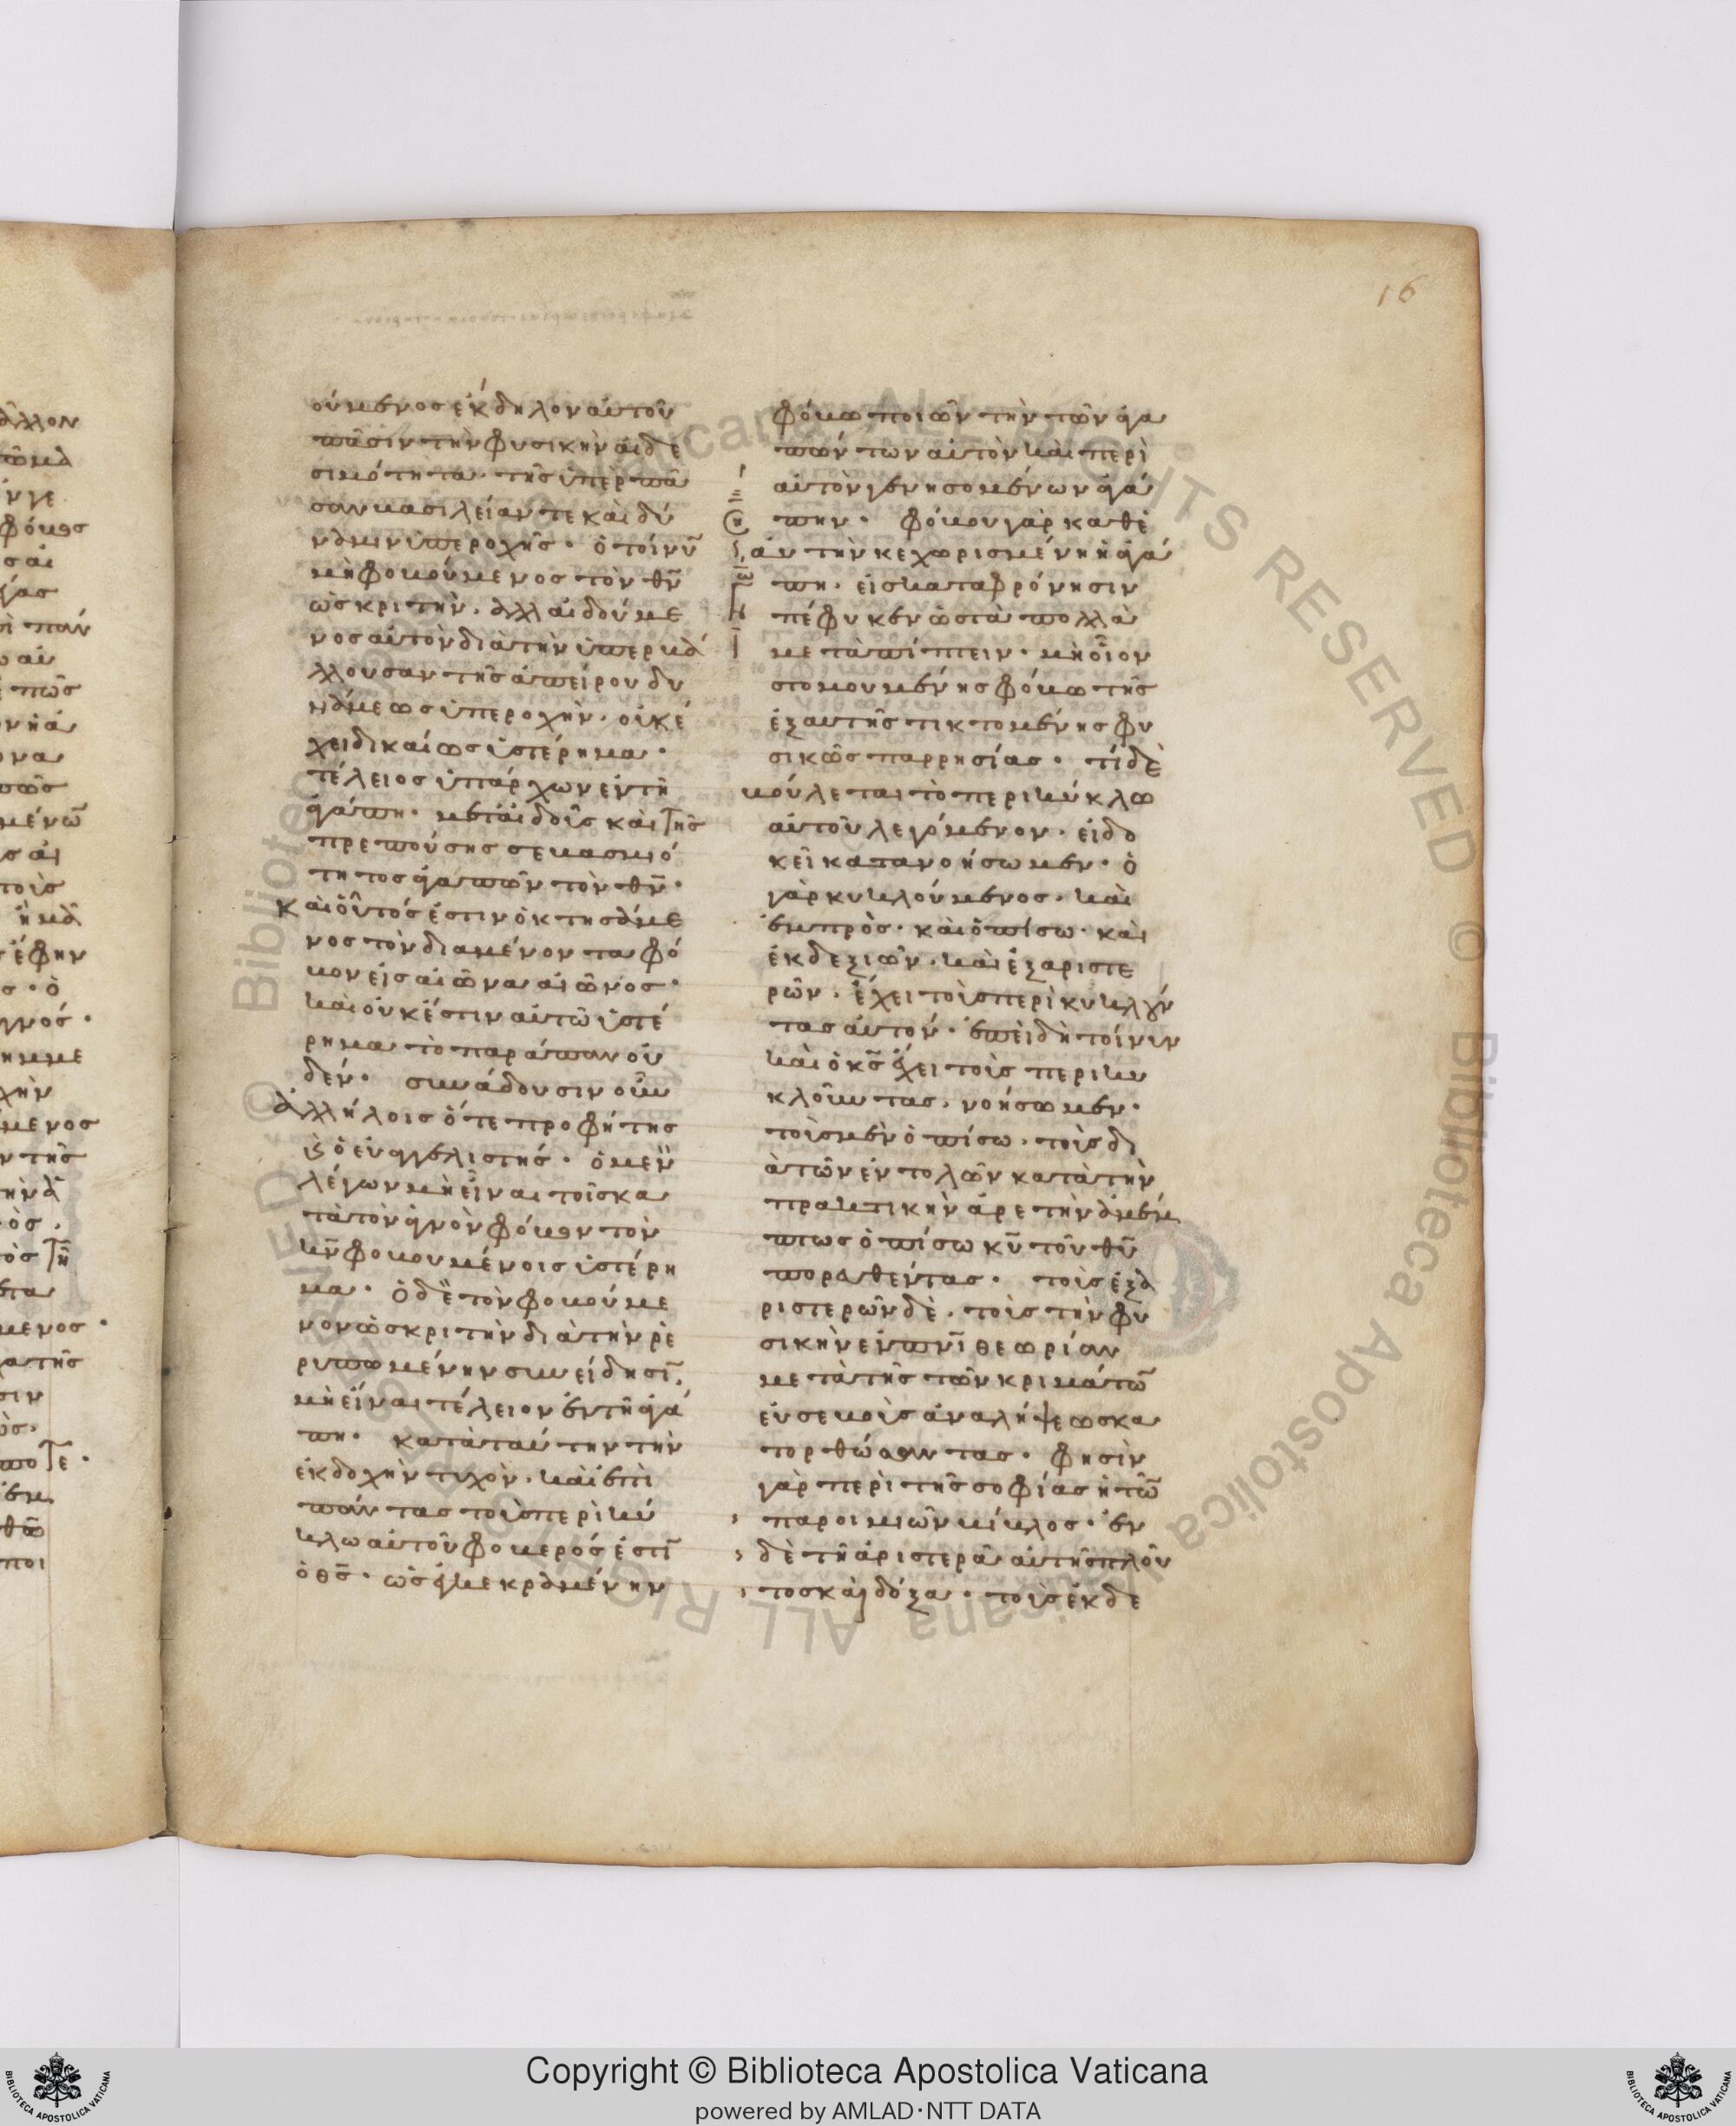 16
ούμενος ἐκδηλον αὐτοῦ
πᾶσιν τὴν φυσικὴν αἰδε
σιμότητα· τῆς ὑπὲρ πᾶ
σαν βασιλείαν τε καὶ δύ
ναμιν ὑπεροχῆς· ὁ τοίνῦ
μὴ φοβούμενος τὸν θν̅
ὡς κριτὴν, ἀλλ' αἰδούμε
νος αὐτὸν διὰ τὴν ὑπερβά
λλουσαν τῆς ἀπείρου δυ
νάμεως ὑπεροχὴν, οὐκ έ
χει δικαίως ὑστέρημα·
τέλειος ὑπάρχων ἐν τῆ
ἀγάπη· μετ' αἰδοῦς καὶ τῆς
πρεπούσης σεβασμιό
τητος ἀγαπῶν τὸν θν̅·
Καὶ οὗτός ἐστιν ὁ κτησάμε
νος τὸν διαμένοντα φό
βον εἰς αἰῶνα αἰῶνος·
καὶ οὐκ ἔστιν αὐτῶ ὑστέ
ρημα τὸ παράπαν οὐ
δέν· συνάδουσιν οὖν
ἀλλήλοις ὅ τε προφήτης
κ̀ ὁ εὐαγγελιστής· ὁ μὲν
λέγων μὴ εἶναι τοῖς κα
τὰ τὸν ἁγνὸν φόβον τὸν
κν̅ φοβουμένοις ὑστέρη
μα· ὁ δὲ τὸν φοβούμε
νον ὡς κριτὴν διὰ τὴν ῥε
ρυπωμένην συνείδησῑ,
μὴ εἶναι τέλειον ἐν τῆ ἀγά
πη· κατὰ ταύτην τὴν
ἐκδοχὴν τυχὸν, καὶ ἐπὶ
πάντας τοὺς περὶ κύ
κλω αὐτοῦ φοβερός ἐστῑ
ὁ θς̅· ὡς ἐγκεκραμένην
φόβω ποιῶν τὴν τῶν ἀγα
πών των αὐτὸν καὶ περὶ
αὐτὸν γενησομένων ἀγά
πην· φόβου γὰρ καθ' ἑ
αυτὴν κεχωρισμένη ἡ ἀγά
πη, εἰς καταφρόνησιν
πέφυκεν ὡς τὰ πολλὰ
μεταπίπτειν· μὴ οἷον
στομουμένης φόβω τῆς
ἐξ αυτῆς τικτομένης φυ
σικῶς παρρησίας· τί δὲ
βούλεται τὸ περικύκλω
αὐτοῦ λεγόμενον, εἰ δο
κεῖ κατανοήσωμεν· ὁ
γὰρ κυκλούμενος, καὶ
ἐμπρὸς· καὶ ὀπίσω· καὶ
ἐκ δεξιῶν, καὶ ἐξ αριστε
ρῶν, ἔχει τοὺς περικυκλοῦν
τας αὐτόν· ἐπειδὴ τοίνυν
καὶ ὁ κς̅ ἔχει τοὺς περικυ
κλοῦντας, νοήσωμεν·
τοὺς μὲν ὀπίσω, τοὺς δι
ὰ τῶν ἐντολῶν κατὰ τὴν
πρακτικὴν ἀρετὴν ἀμέμ
πτως ὀπίσω κυ̅ τοῦ θυ̅
πορευθέντας· τοὺς ἐξ ἀ
ριστερῶν δὲ, τοὺς τὴν φυ
σικὴν ἐν πνι̅ θεωρίαν
μετὰ τῆς τῶν κριμάτω̅
εὐσεβοῦς ἀναλήψεως κα
τορθώσαντας· φησὶν
γὰρ περὶ τῆς σοφίας ἡ τω̅
παροιμιῶν βίβλος· ἐν
δὲ τῆ ἀριστερᾶ αὐτῆς πλοῦ
τος καὶ δόξα· τοὺς ἐκ δε
Copyright © Biblioteca Apostolica Vaticana
powered by AMLAD·NTT DATA